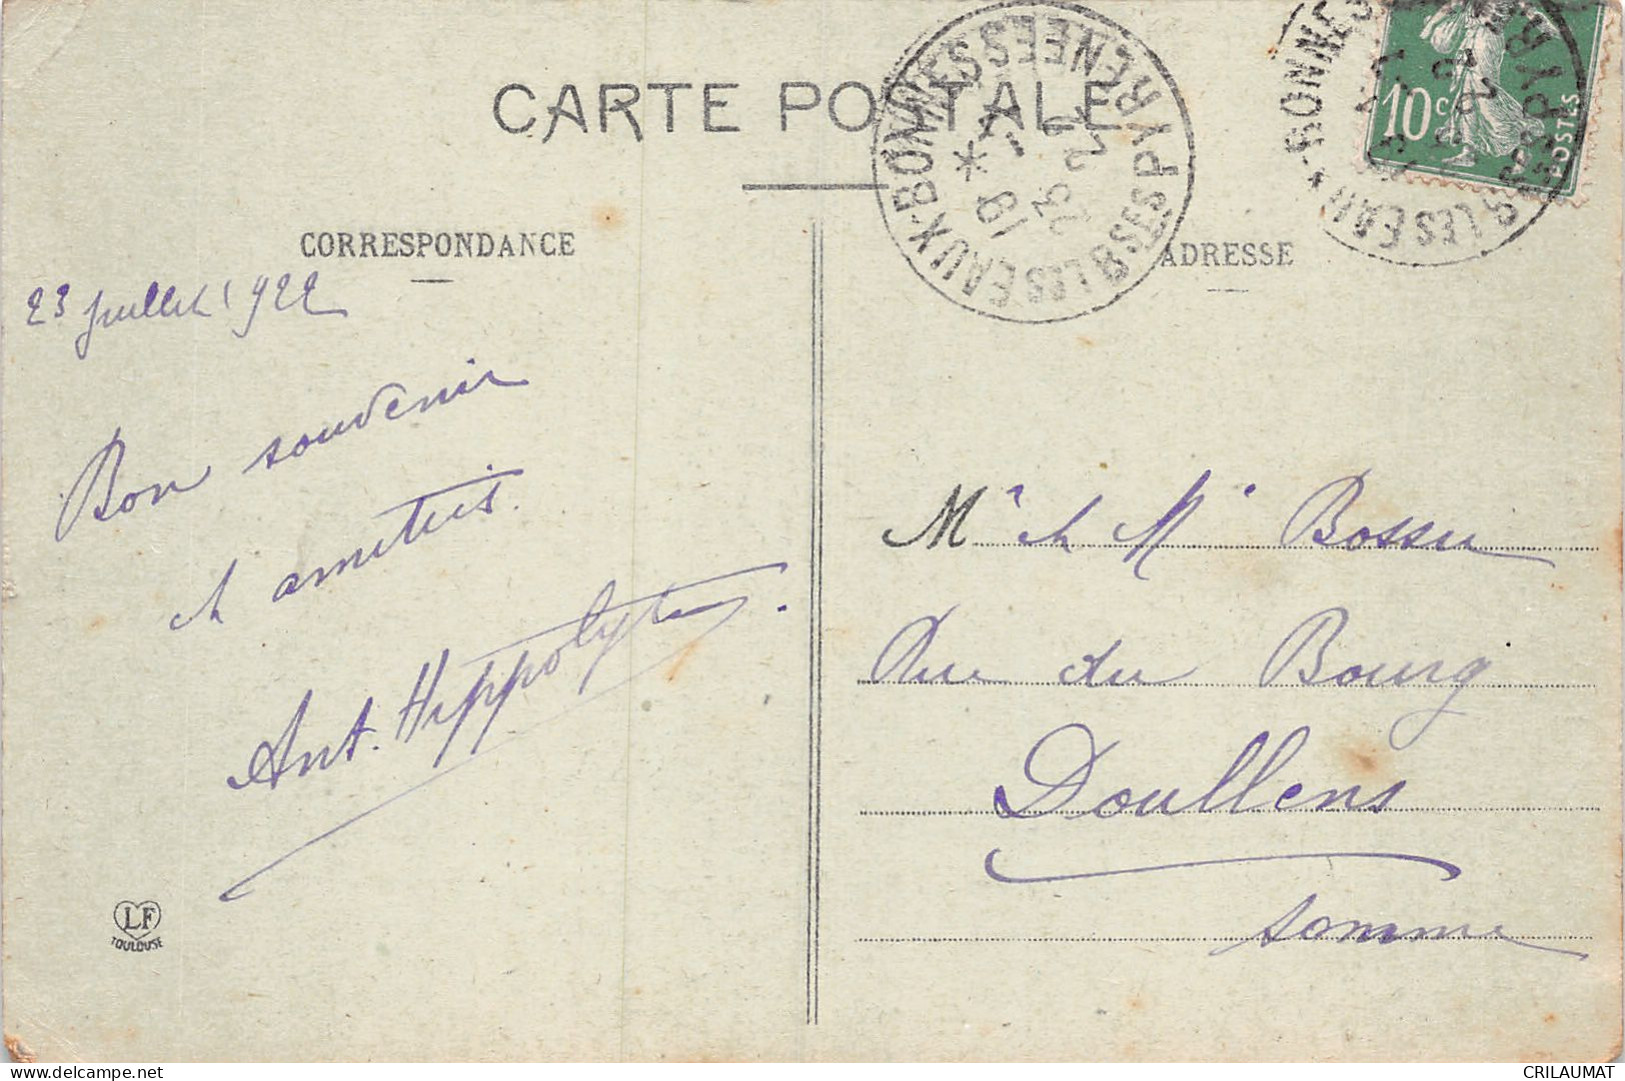 CARTE POSTALE
CORRESPONDANCE
ADRESSE
LES EAUX-BONNES
BSES PYRENEES
19
25 -7
22
10c
POSTES
23 Juillet 1922
Bon souvenir
et amitiés.
Ant. Hippolyte.
Mr et Me Bossu
Rue du Bourg
Doullens
Somme
LF
TOULOUSE
delcampe.net
CRILAUMAT